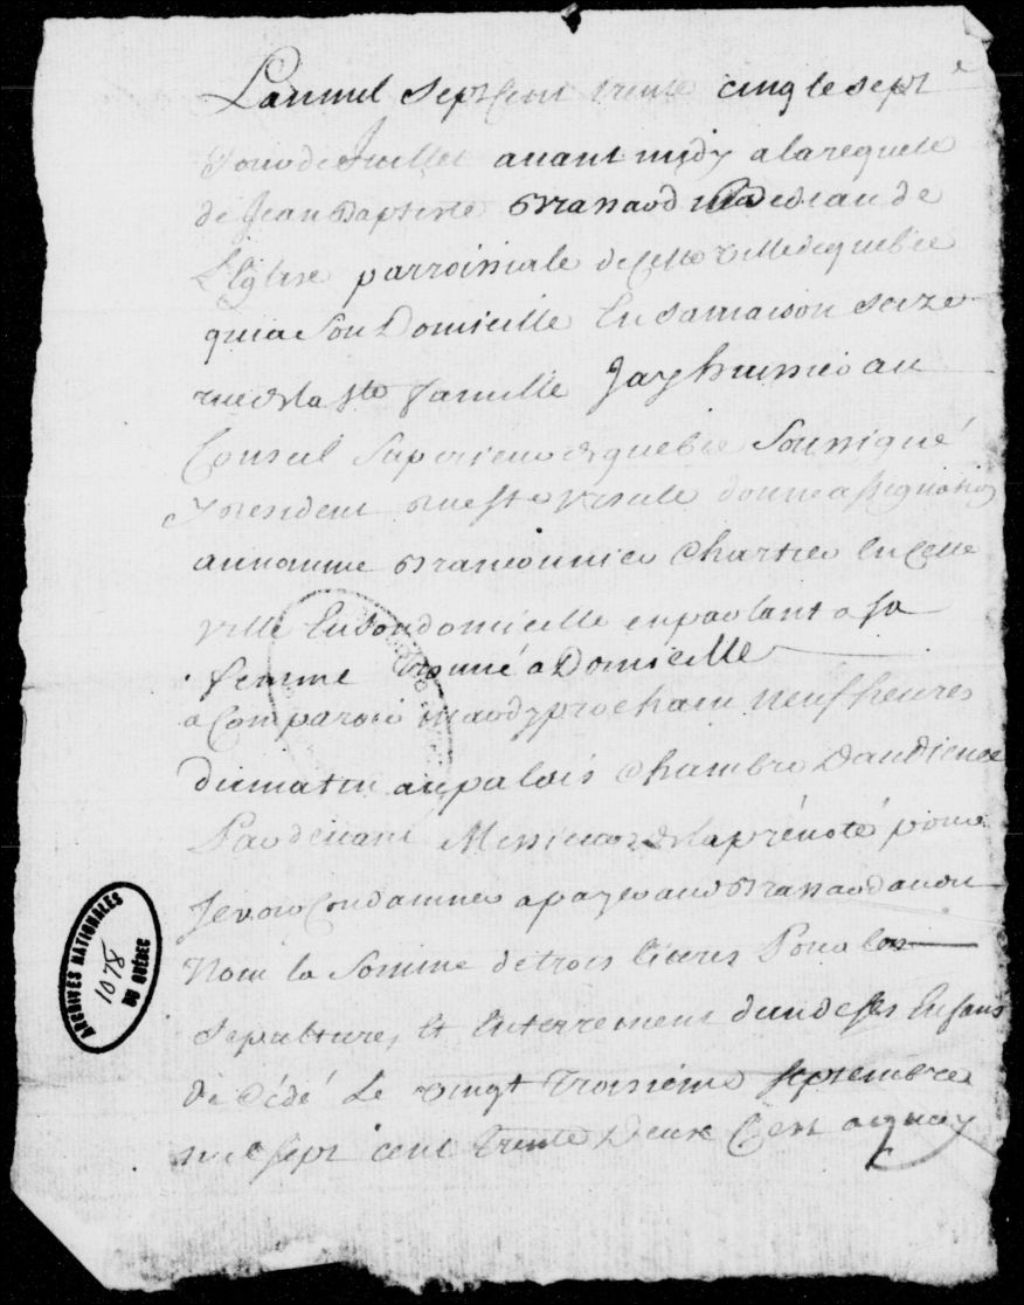 Lanmil Sept Cent trente cinq le sept e
Jour de Juillet auant midy a la requete
de Jean Baptiste Brassard Bedeau de
L'Eglise parroissiale de Cette Ville de quebec
qui a Son Domicille En Sa maison Seize
rue de la Ste famille Jay huissier au
Conseil Superieur de quebec Soussigné
y resident rue Ste Ursule donne assignation
au nomme Chartier En Cette
Ville En Son domicille en parlant a Sa
femme a Domicille
a Comparoir mardy prochain neuf heures
du matin au palais Chambre D'audience
Pardeuant Messieurs de la prévoté pour
Se voir Condamner a payer aud Brassard aud
Nom la Somme de trois liures Pour la
Sepulture, Et Enterrement dun de Ses Enfans
De Cédé Le vingt Troisième Septembre
mil Sept cent trente Deux Cest aquoy
ARCHIVES NATIONALES
1078
DU QUÉBEC